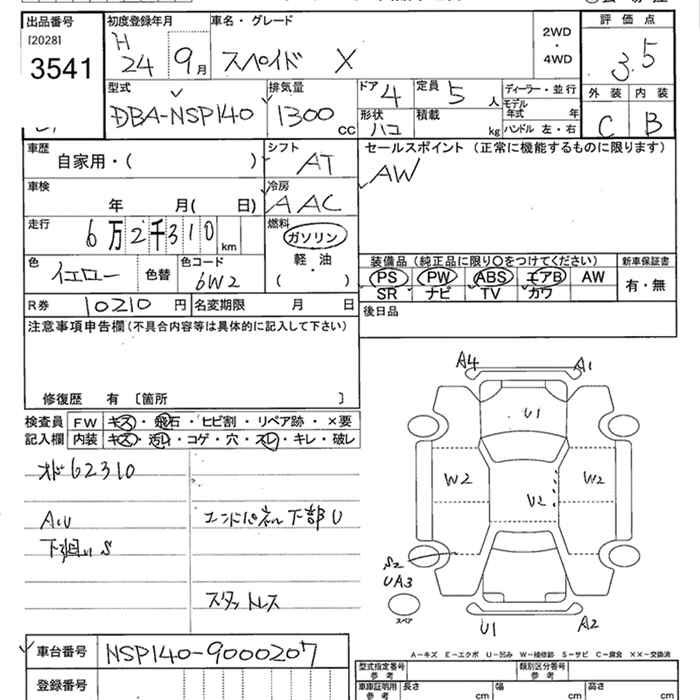 出品番号 初度登録年月 車名・グレード 評価点
[2028] H
3541 24 9月 スペイド X 2WD ・ 4WD 3.5
外装 内装
C B
型式 排気量 ドア 4 定員 5人 ディーラー・並行
DBA-NSP140 1300 CC 形状 ハコ 積載 kg モデル年式 年
ハンドル 左・右
車歴 シフト セールスポイント (正常に機能するものに限ります)
自家用・( ) AT AW
車検 冷房
年 月( 日) AAC
走行 6万2千310km 燃料
ガソリン
軽油
・
( )
色 イエロー 色替 色コード 6W2
装備品 (純正品に限り○をつけてください) 新車保証書
PS PW ABS エアB AW 有・無
SR ナビ TV カワ
R券 10210円 名変期限 月 日 後日品
注意事項申告欄(不具合内容等は具体的に記入して下さい)
修復歴 有 〔箇所 〕
検査員 FW キズ・飛石・ヒビ割・リペア跡・×要
記入欄 内装 キズ・汚レ・コゲ・穴・スレ・キレ・破レ
オド62310
AｉU エンドパネル下部U
下廻りS
スタットレス
A4 A1
U1
W2 W2
U2
S2
UA3
スペア
U1 A2
A－キズ E－エクボ U－凹み W－補修跡 S－サビ C－腐食 ××－交換済
車台番号 NSP140-9000207
登録番号
型式指定番号 参考 類別区分番号 参考
車庫証明用 参考 長さ cm 幅 cm 高さ cm